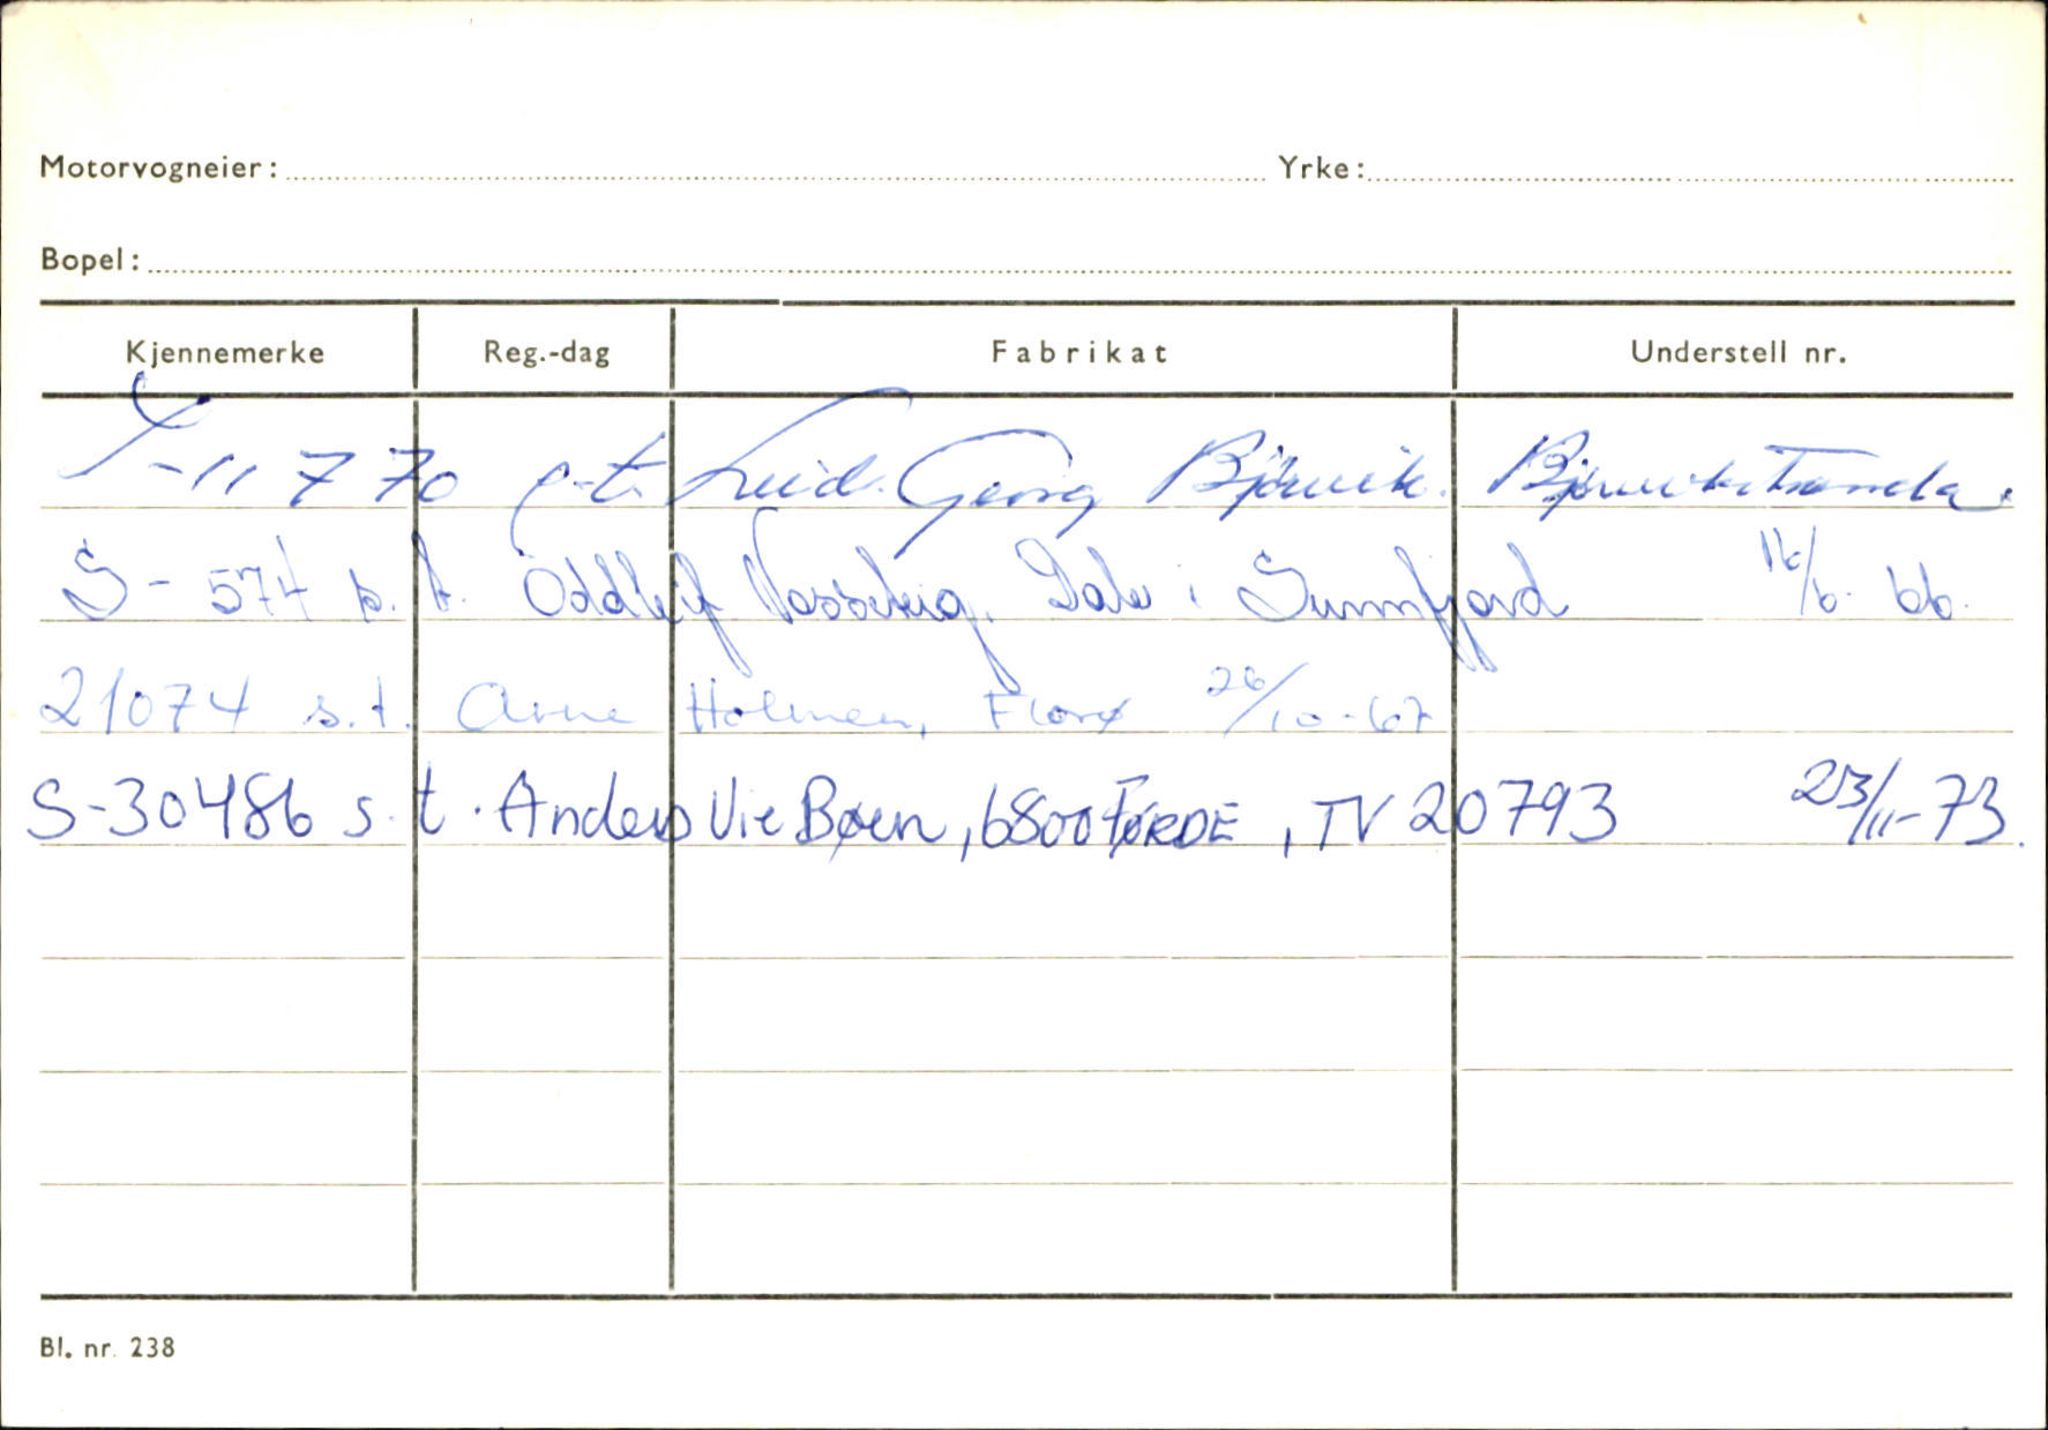 Motorvogneier: Yrke:
Bopel:
Kjennemerke Reg.-dag Fabrikat Understell nr.
S-11770 s.t. Georg Bjørvik.
S-574 s.t. Oddleif Dale i Sunnfjord 16/6. 66.
21074 s.t. Arne Holmen, Florø 26/10-67
S-30486 s.t. Anders Vie Bøen, 6800 FØRDE, TV 20793 23/11-73.
Bl. nr. 238